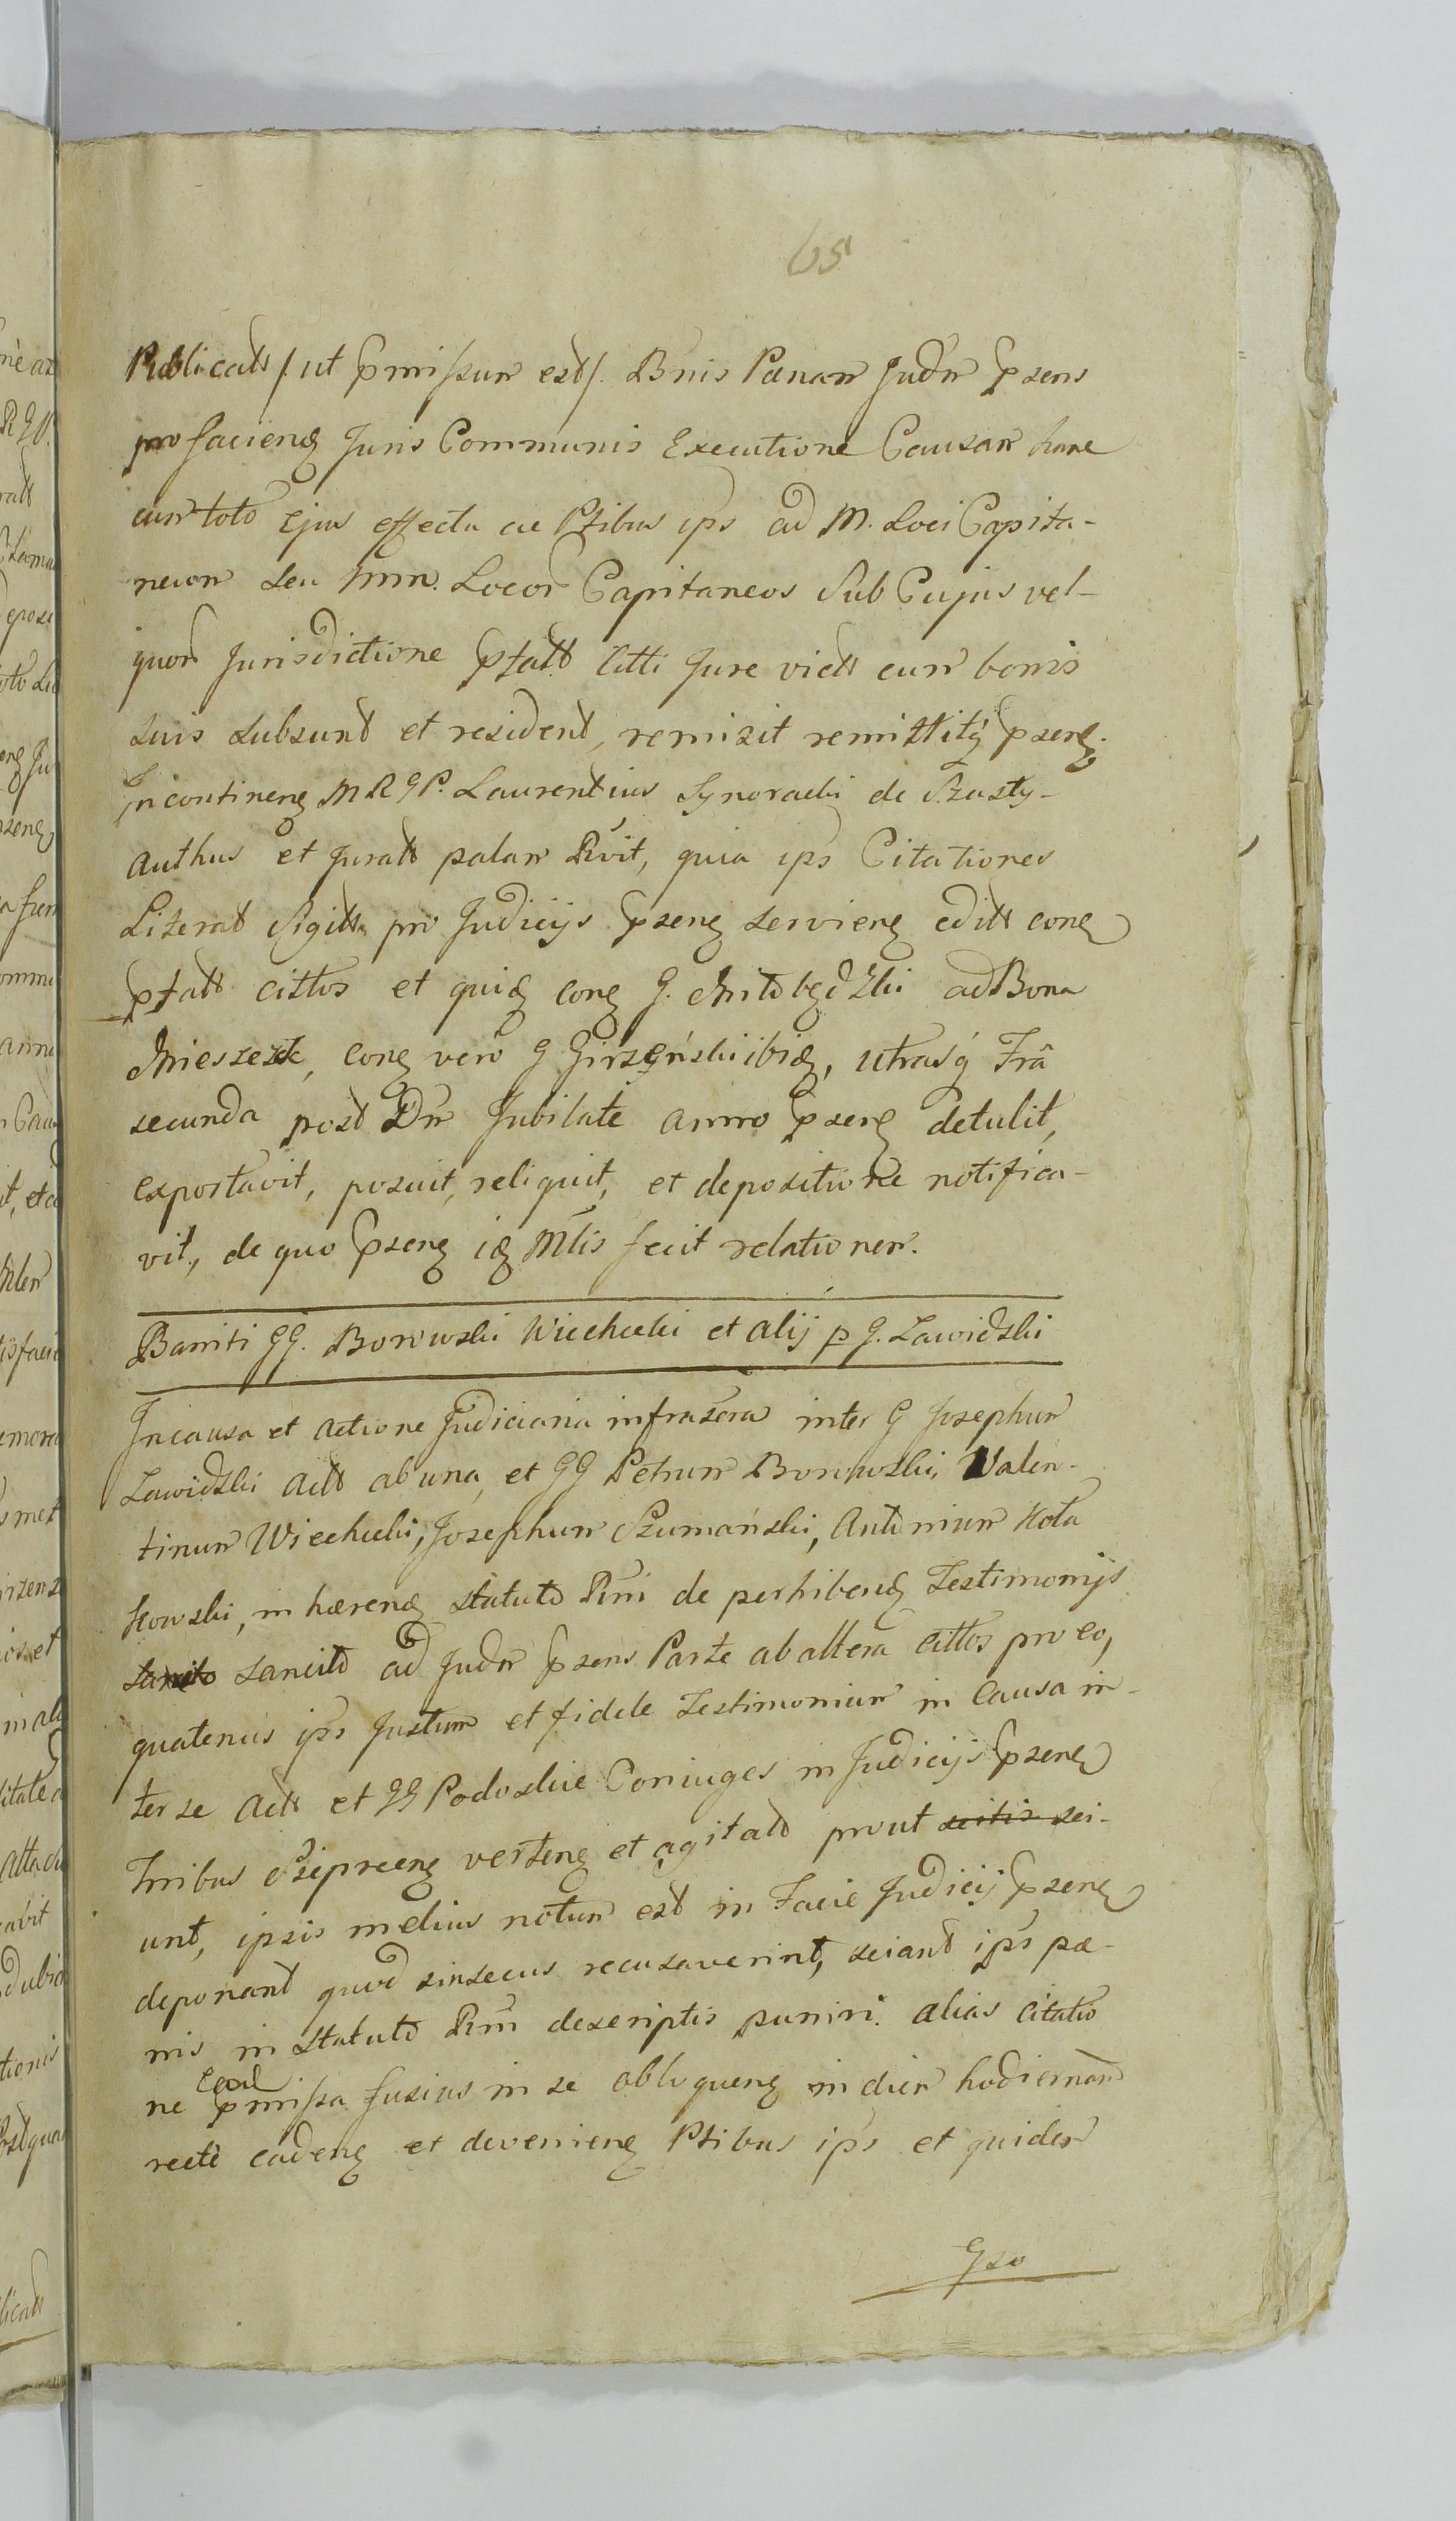 65
Publicatt /: ut pmissum est /. Bnis Pænam Judm psens
pro facienq Juris Communis Executione Causam hanc
cum toto Ejus effectu ac Ptibus ips ad M. Loci Capita-
neum seu MM. Locor Capitaneos Sub Cujus vel-
quor Jurisdictione pfatt Citti Jure victi cum bonis
suis subsunt et resident, remisit remittitq psenq.
Incontinenq MRGP. Laurentius Synoracki de Szasty-
Authus et Juratt palam Rvit, quia ips Citationes
Literat Sigitta pro Judicijs psenq servienq editt conq
pfatt cittos et quidq conq G. Niedbędzki ad Bona
Mieszczk, conq vero G Girzyński ibiq, utrasq Fra
secunda post Dm Jubilate anno psenq detulit,
exportavit, posuit, reliquit, et depositione notifica-
vit, de quo psenq iq Mlis fecit relationem.
Banniti GG. Borowski Wiechecki et alij p G. Zawidzki
In causa et actione Judiciaria infrascra inter G Josephum
Zawidzki Actt ab una, et GG Petrum Borowski, Valen-
tinum Wiechecki, Josephum Szumański, Antonium Kota
kowski, in hærenq statuto Rni de perhibenq Testimonijs
sancito ad Judm psens Parte ab altera cittos pro eo,
quatenus ips Justum et fidele Testimonium in Causa in-
ter se Actt et GG Podoskie Coniuges in Judicijs psenq
Tmibus Sieprcenq vertenq et agitatt prout scitis sci-
unt, ipsis melius notum est in Facie Judicij psenq
deponant quod sinsecus recusaverint, sciant ips pæ-
nis in statuto Rni descriptis puniri. alias citatio
ne pmissa fusius in se obloquenq in diem hodiernam
recte cadenq et devenienq Ptibus ips et quidem
Gso